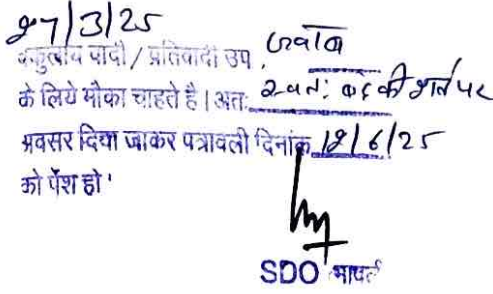 27/3/25
वकुलाय वादी / प्रतिवादी उप. जवाब
के लिये मौका चाहते है। अतः स्वतः बंद की शर्त पर
अवसर दिया जाकर पत्रावली दिनांक 12/6/25
को पेंश हो'
SDO